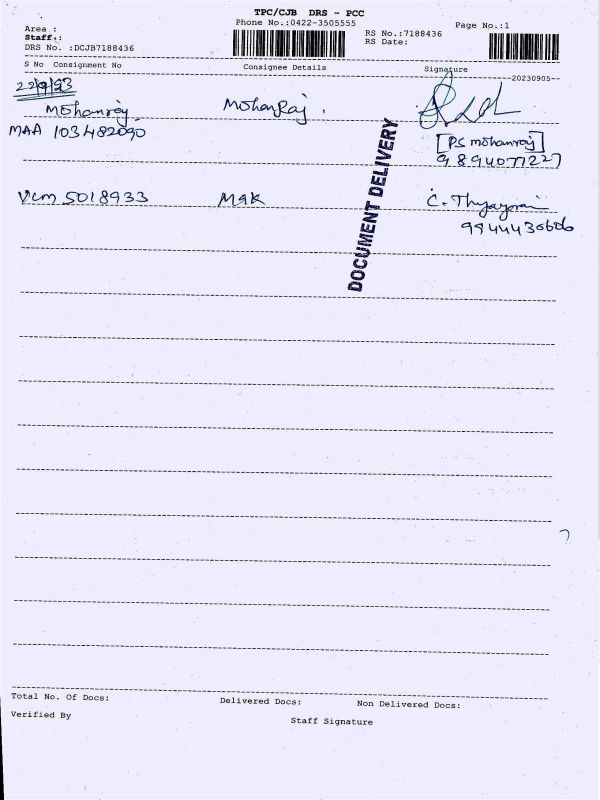 TPC/CJB DRS - PCC
Phone No.:0422-3505555
Page No.:1
Area :
Staff :
DRS No. :DCJB7188436
RS No.:7188436
RS Date:
S No Consignment No Consignee Details Signature
--20230905--
22/9/23
Mohanraj Mohan Raj.
MAA 103482090
[P.S mohanraj]
9894077227
VCM 5018933 M9K C. Thyagarai
9944430606
DOCUMENT DELIVERY
Total No. Of Docs: Delivered Docs: Non Delivered Docs:
Verified By Staff Signature